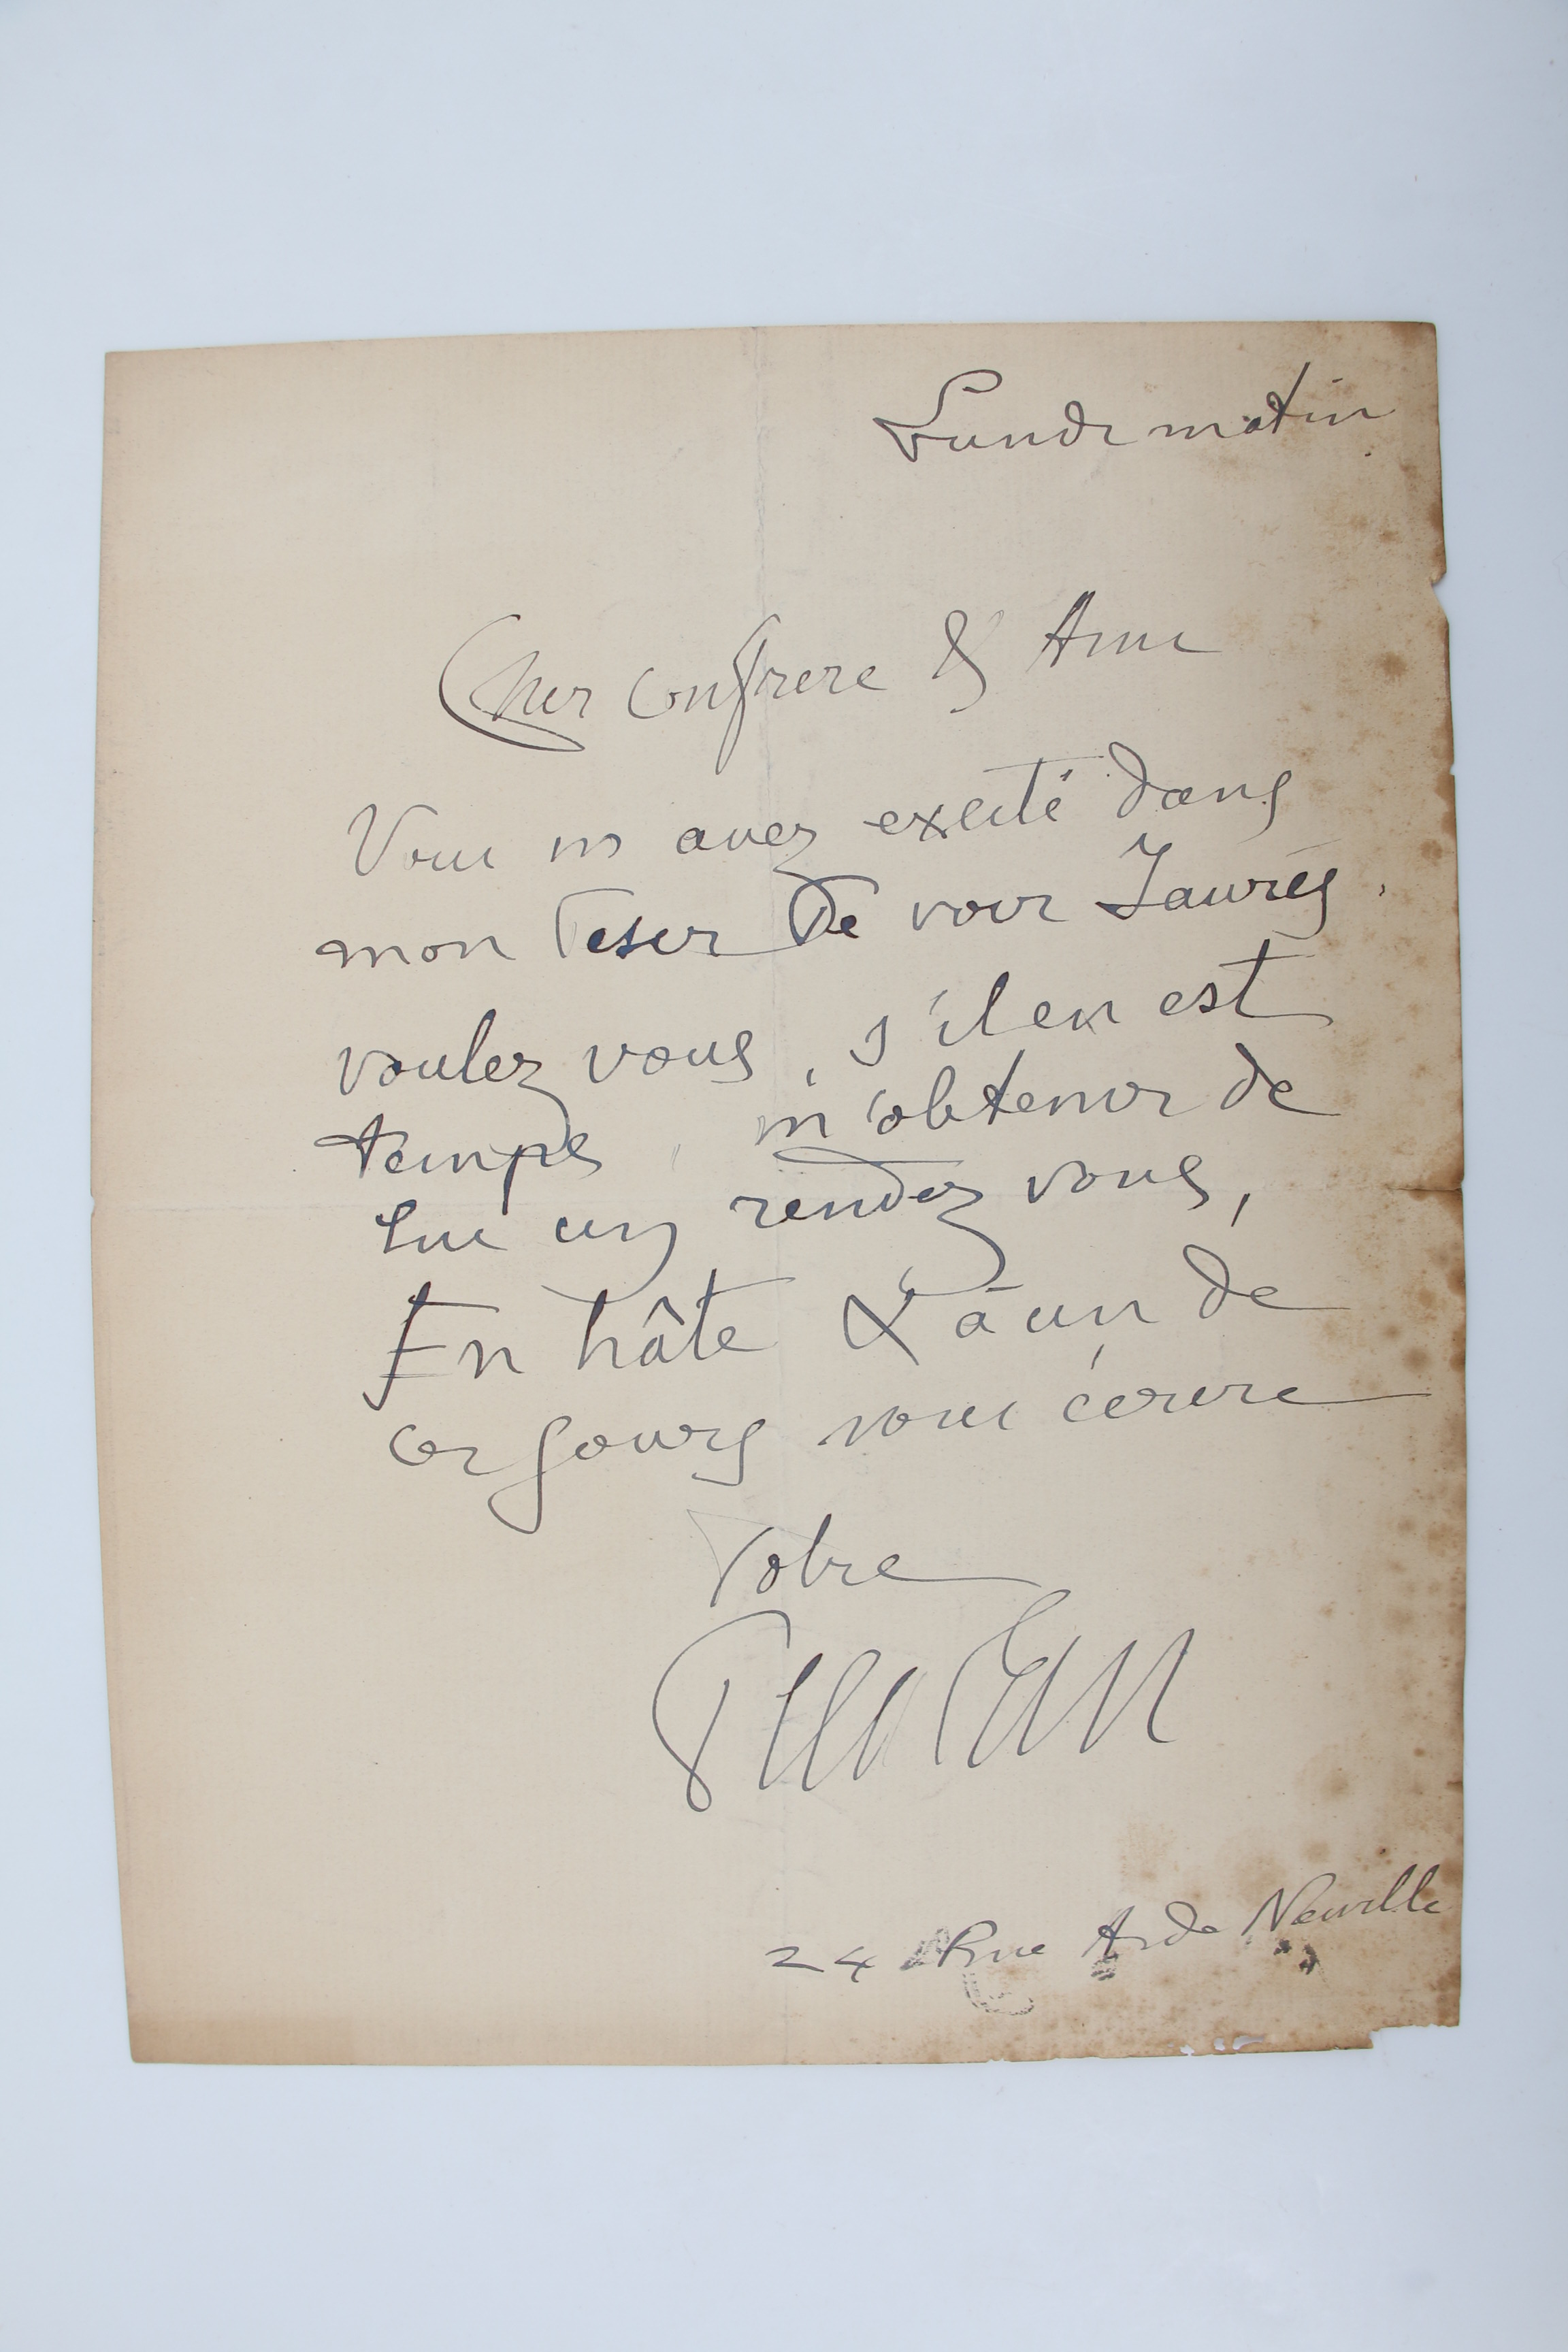 Lundi matin
Cher confrere & Ami
Vous m avez excité dans
mon desir de voir Jaurès.
voulez vous, s'il en est
temps, m'obtenir de
lui un rendez vous,
En hâte & à un de
ces jours votre
24 Rue A. de Neuville